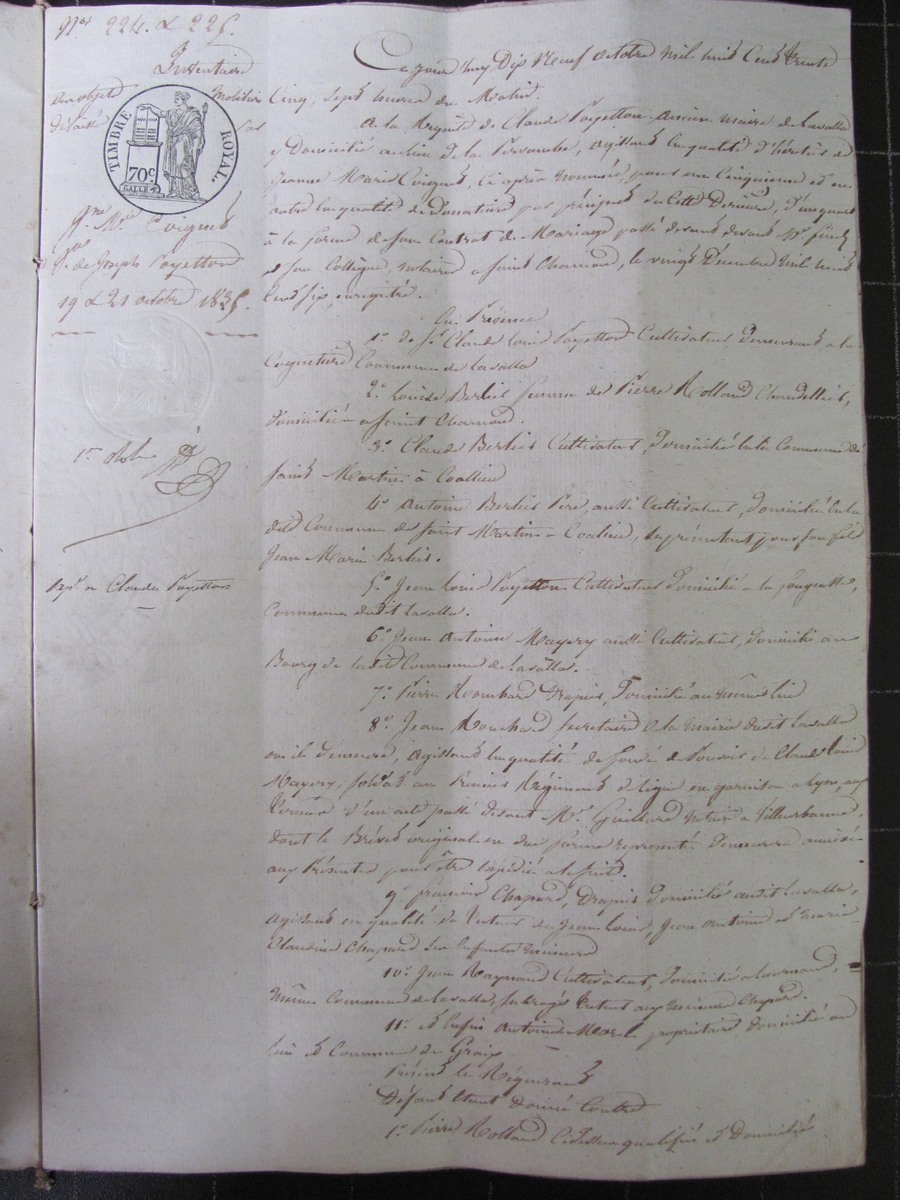 Nos 224. & 225.
Inventaire
des objets mobiliers
délaissés par
TIMBRE ROYAL.
70c
SALLE
Jne Mie Coignet
Ve de Joseph Poyetton
19 & 21 octobre 1835.
1er rôle
Rqt de Claude Poyetton
Ce jourd'huy Dix Neuf octobre mil huit Cent trente
Cinq, sept heures du Matin
A la Requête de Claude Poyetton ancien maire de Lavalla
y Domicilié au lieu de la , agissant en qualité d'héritier de
Jeanne Marie Coignet, ci après nommée, pour un Cinquième et en
outre en qualité de Donataire par préciput de cette Dernière, D'après
à la forme de son Contrat de Mariage passé devant Me
et son Collègue, notaires a saint Chamond, le vingt Décembre mil huit
Cent six, enregistré.
En Présence
1o de Sr Claude Louis Poyetton Cultivateur Demeurant a la
Commune de Lavalla
2o Louise Berlier femme de Pierre Rolland Chaudellier,
Domicilié a saint Chamond.
3o Claude Berlier Cultivateur, Domicilié en la Commune de
saint Martin à Coalieu
4o Antoine Berlier Père, aussi Cultivateur, Domicilié en la
dite Commune de saint Martin a Coalieu, représentant pour son fils
Jean Marie Berlier.
5o Jean Louis Poyetton Cultivateur Domicilié a la fougeatte,
Commune dudit Lavalla.
6o Jean Antoine Mayery aussi Cultivateur, Domicilié au
Bourg de ladite Commune de Lavalla.
7o Pierre Drapier, Domicilié au même lieu
8o Jean secrétaire de la mairie dudit Lavalla
où il demeure, agissant en qualité de fondé de Pouvoir de Claude Louis
Mayery, soldat au Régiment de ligne en garnison a Lyon, aux
termes d'un acte passé devant Me Guillard Notaire a Villeurbanne,
dont le Brevet original en due forme représenté Demeurera annexé
aux Présentes pour être expédié a la suite.
9o françois Chapard, Drapier Domicilié audit Lavalla,
agissant en qualité de tuteur de Jean Louis, Jean Antoine et Marie
Claudine Chapard ses Enfants mineurs
10o Jean Raynaud Cultivateur, Domicilié a ,
même Commune de Lavalla, subrogé tuteur aux mineurs Chapard.
11o et Enfin Antoine Morel propriétaire Domicilié au
lieu et Commune de Graix
Présent le Requérant
Défaut étant Donné Contre
1o Pierre Rolland Ci Dessus qualifié et Domicilié